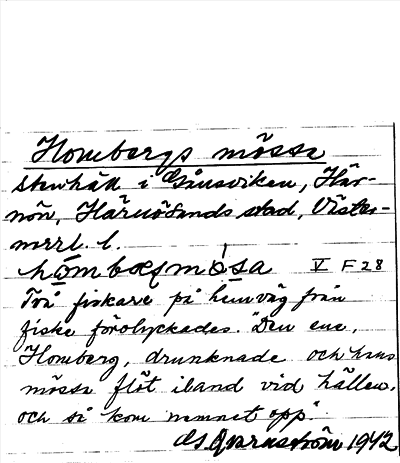 Hombergs mössa
Stenhäll i Gånsviken, Här-
nön, Härnösands stad, Väster-
norrl. l.
hómbærjmǿsa V F 28
Två fiskare på hemväg från
fiske förolyckades. "Den ene,
Homberg, drunknade och hans
mössa flöt iland vid hällen,
och så kom namnet opp."
1942